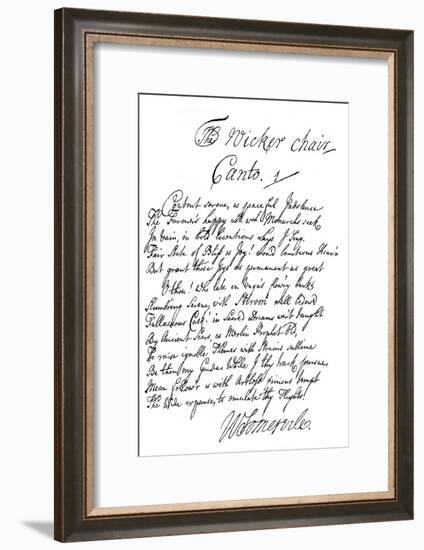 The Wicker Chair
Canto. 1
Content serene, or peaceful Indolence
The Farmer's happy
In vain, in bold licentious Lays I Sing.
Fair State of Bliss or Joy! Send bounteous Heav'n
But grant those Joys as permanent as great
O thou! who late on Vaga's flow'ry banks
Slumbring Serene, with Strom well
Fallacious Cask! in Sacred Dreams wert taught
By Ancient Seers, or Merlin Prophet Old,
To raise ignoble Themes with Strains sublime
Be thou my Guide While I thy track pursue,
Mean Follow'r with Artless pinions tempt
The Wide expanse, to emulate thy Flights!
WSomervile.